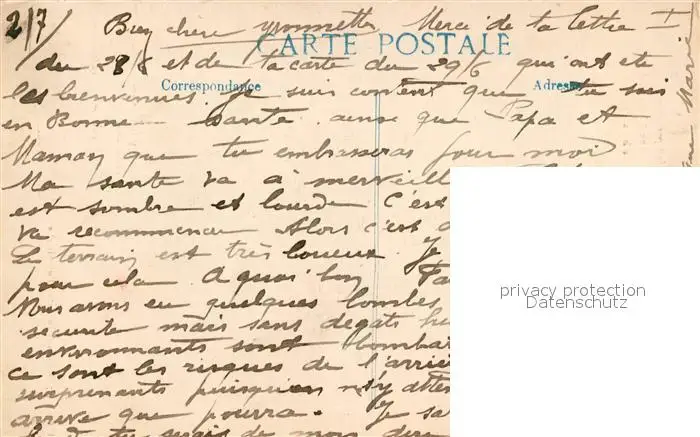 2/7 Bien chere Yvonnette Merci de ta lettre
CARTE POSTALE
du 28/6 et de ta carte du 29/6 qui ont ete
Correspondance Adresse
les bienvenues. Je suis content que tu sois
en Bonne sante ainsi que Papa et
Maman que tu embrasseras pour moi
Ma sante va à merveille
est sombre et lourde C'est
va recommencer Alors c'est
Le terrain est très boueux. Je
pour cela. A quoi bon
Nous avons eu quelques bombes
securite mais sans degats
environnants sont bombar
ce sont les risques de l'arrie
surprenants puisqu'on s'y atten
arrive que pourra. Je
tu serais de mon
privacy protection
Datenschutz